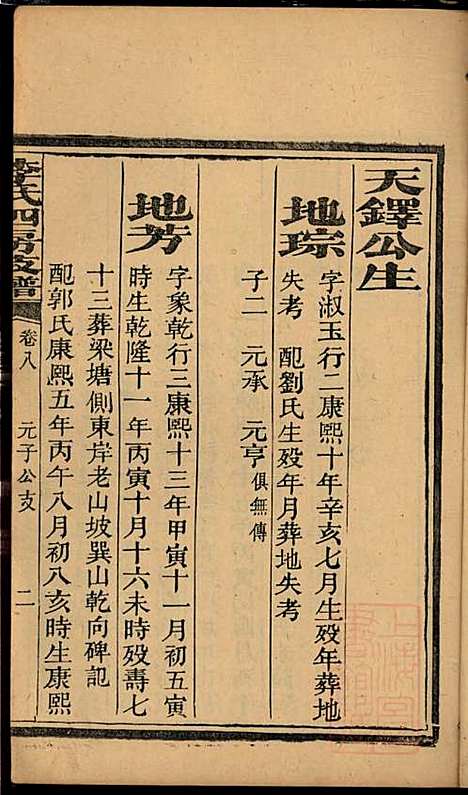 天鐸公生
地琮
字淑玉行二康熙十年辛亥七月生歿年葬地
失考 配劉氏生歿年月葬地失考
子二 元承 元亨俱無傳
地芳
字象乾行三康熙十三年甲寅十一月初五寅
時生乾隆十一年丙寅十月十六未時歿壽七
十三葬梁塘側東岸老山坡巽山乾向碑記
配郭氏康熙五年丙午八月初八亥時生康熙
氏四房支譜
卷八
元子公支
二